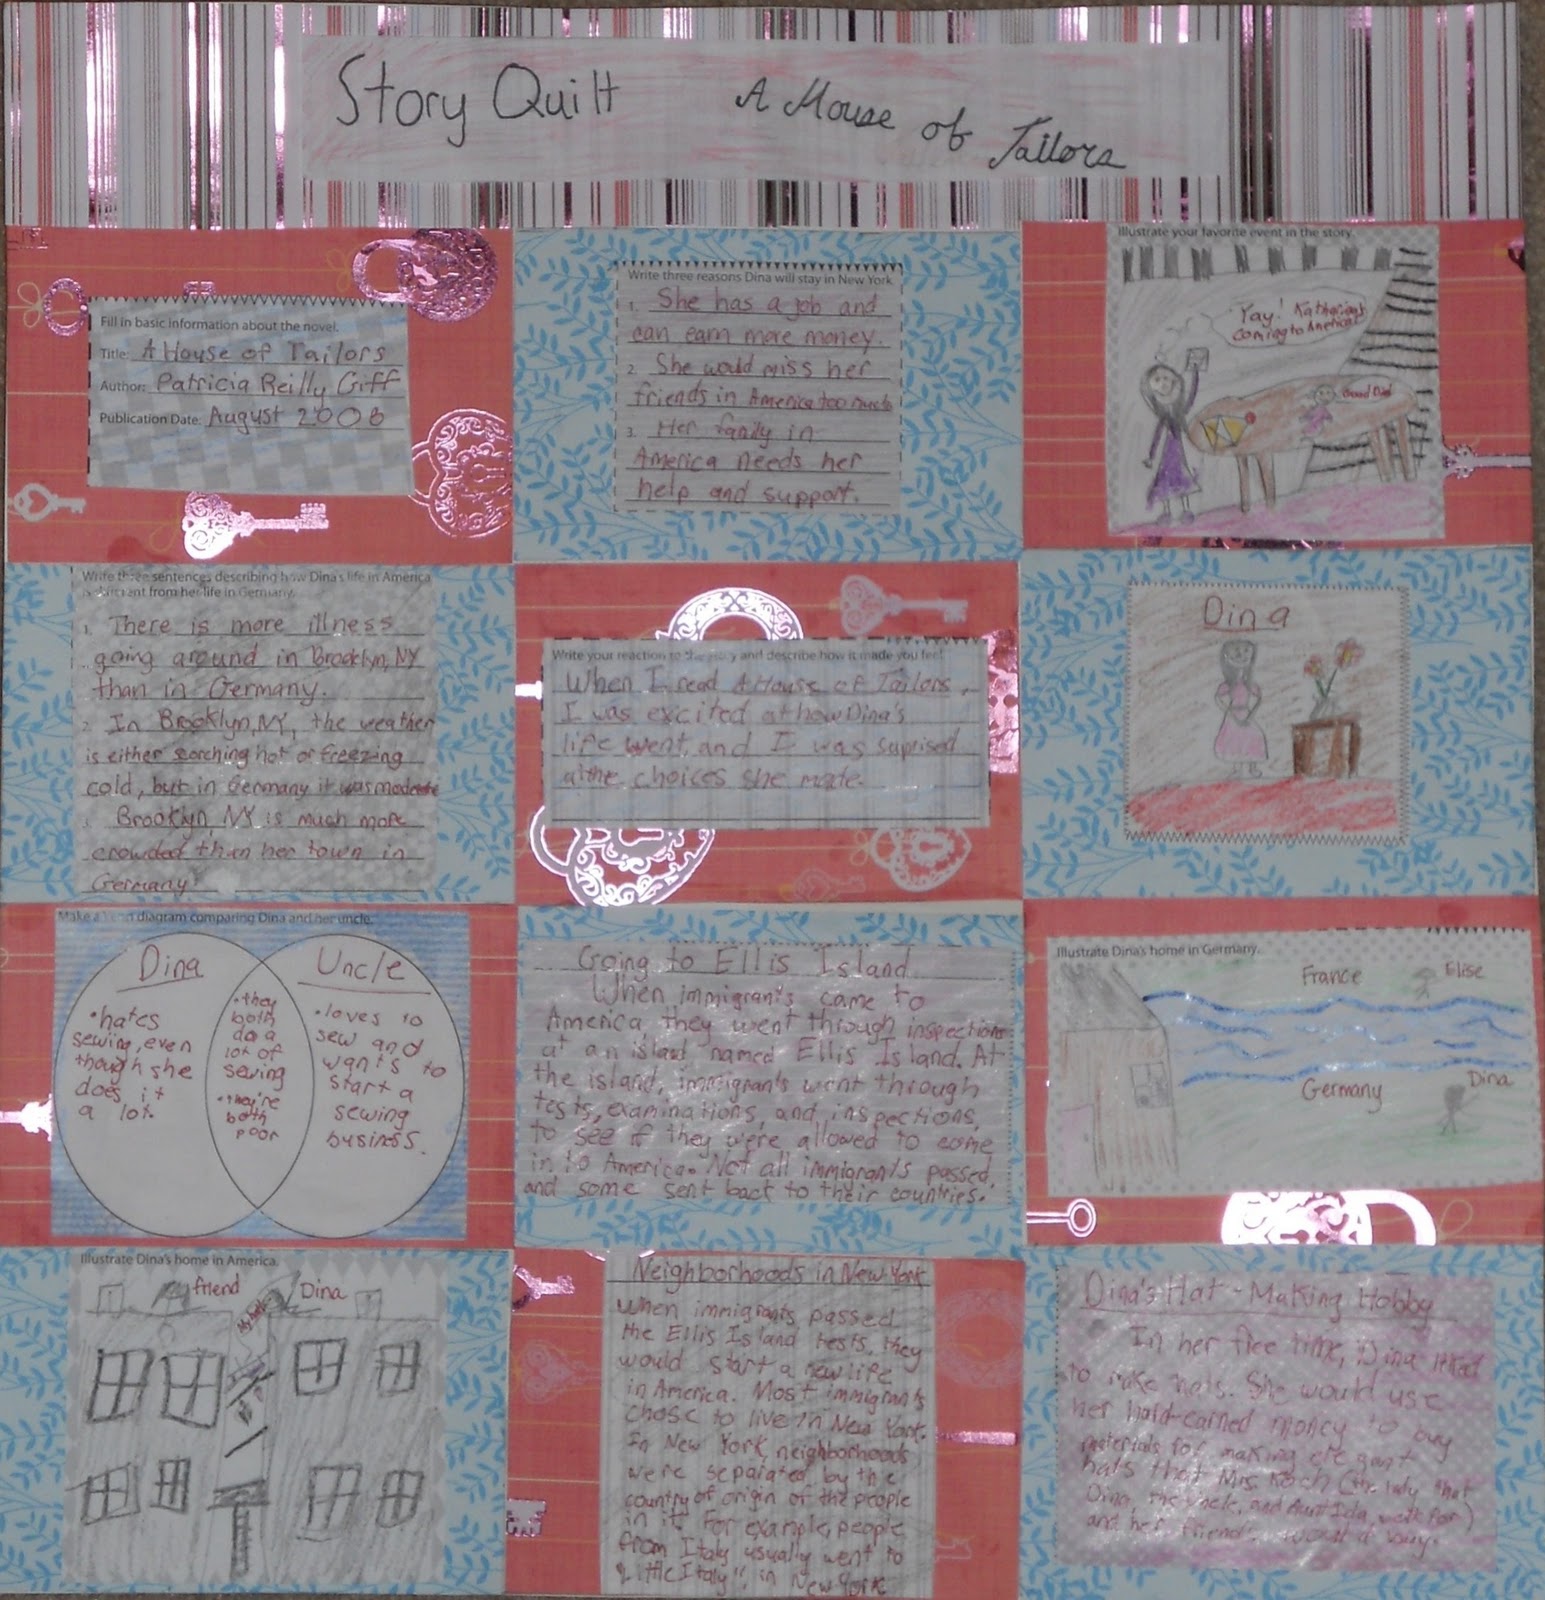 Story Quilt
A House of Tailors
Fill in basic information about the novel.
Title: A House of Tailors
Author: Patricia Reilly Giff
Publication Date: August 2008
Write three reasons Dina will stay in New York
1. She has a job and
can earn more money.
2. She would miss her
friends in America too much
3. Her family in
America needs her
help and support.
Illustrate your favorite event in the story.
Yay!
coming to America!
Write three sentences describing how Dina's life in America
is different from her life in Germany.
1. There is more illness
going around in Brooklyn, NY
than in Germany.
2. In Brooklyn, NY, the weather
is either scorching hot or freezing
cold, but in Germany it was moderate
3. Brooklyn, NY is much more
crowded than her town in
Germany.
Write your reaction to the story and describe how it made you feel
When I read A House of Tailors,
I was excited at how Dina's
life went, and I was suprised
at the choices she made.
Dina
Make a Venn diagram comparing Dina and her uncle.
Dina
• hates
sewing, even
though she
does it
a lot.
• they
both
do a
lot of
sewing
• they're
both
poor
Uncle
• loves to
sew and
wants to
start a
sewing
business.
Going to Ellis Island
When immigrants came to
America, they went through inspections
at an island named Ellis Island. At
the island, immigrants went through
tests, examinations, and inspections,
to see if they were allowed to come
in to America. Not all immigrants passed,
and some sent back to their countries.
Illustrate Dina's home in Germany.
France
Elise
Germany
Dina
Illustrate Dina's home in America.
friend
Dina
Neighborhoods in New York
When immigrants passed
the Ellis Island tests, they
would start a new life
in America. Most immigrants
chose to live in New York.
In New York, neighborhoods
were separated by the
country of origin of the people
in it. For example, people
from Italy usually went to
"Little Italy", in New York
Dina's Hat-Making Hobby
In her free time, Dina liked
to make hats. She would use
her hard-earned money to buy
materials for making elegant
hats that Mrs. Koch (the lady that
Dina, the Uncle, and Aunt Ida, work for)
and her friends would buy.